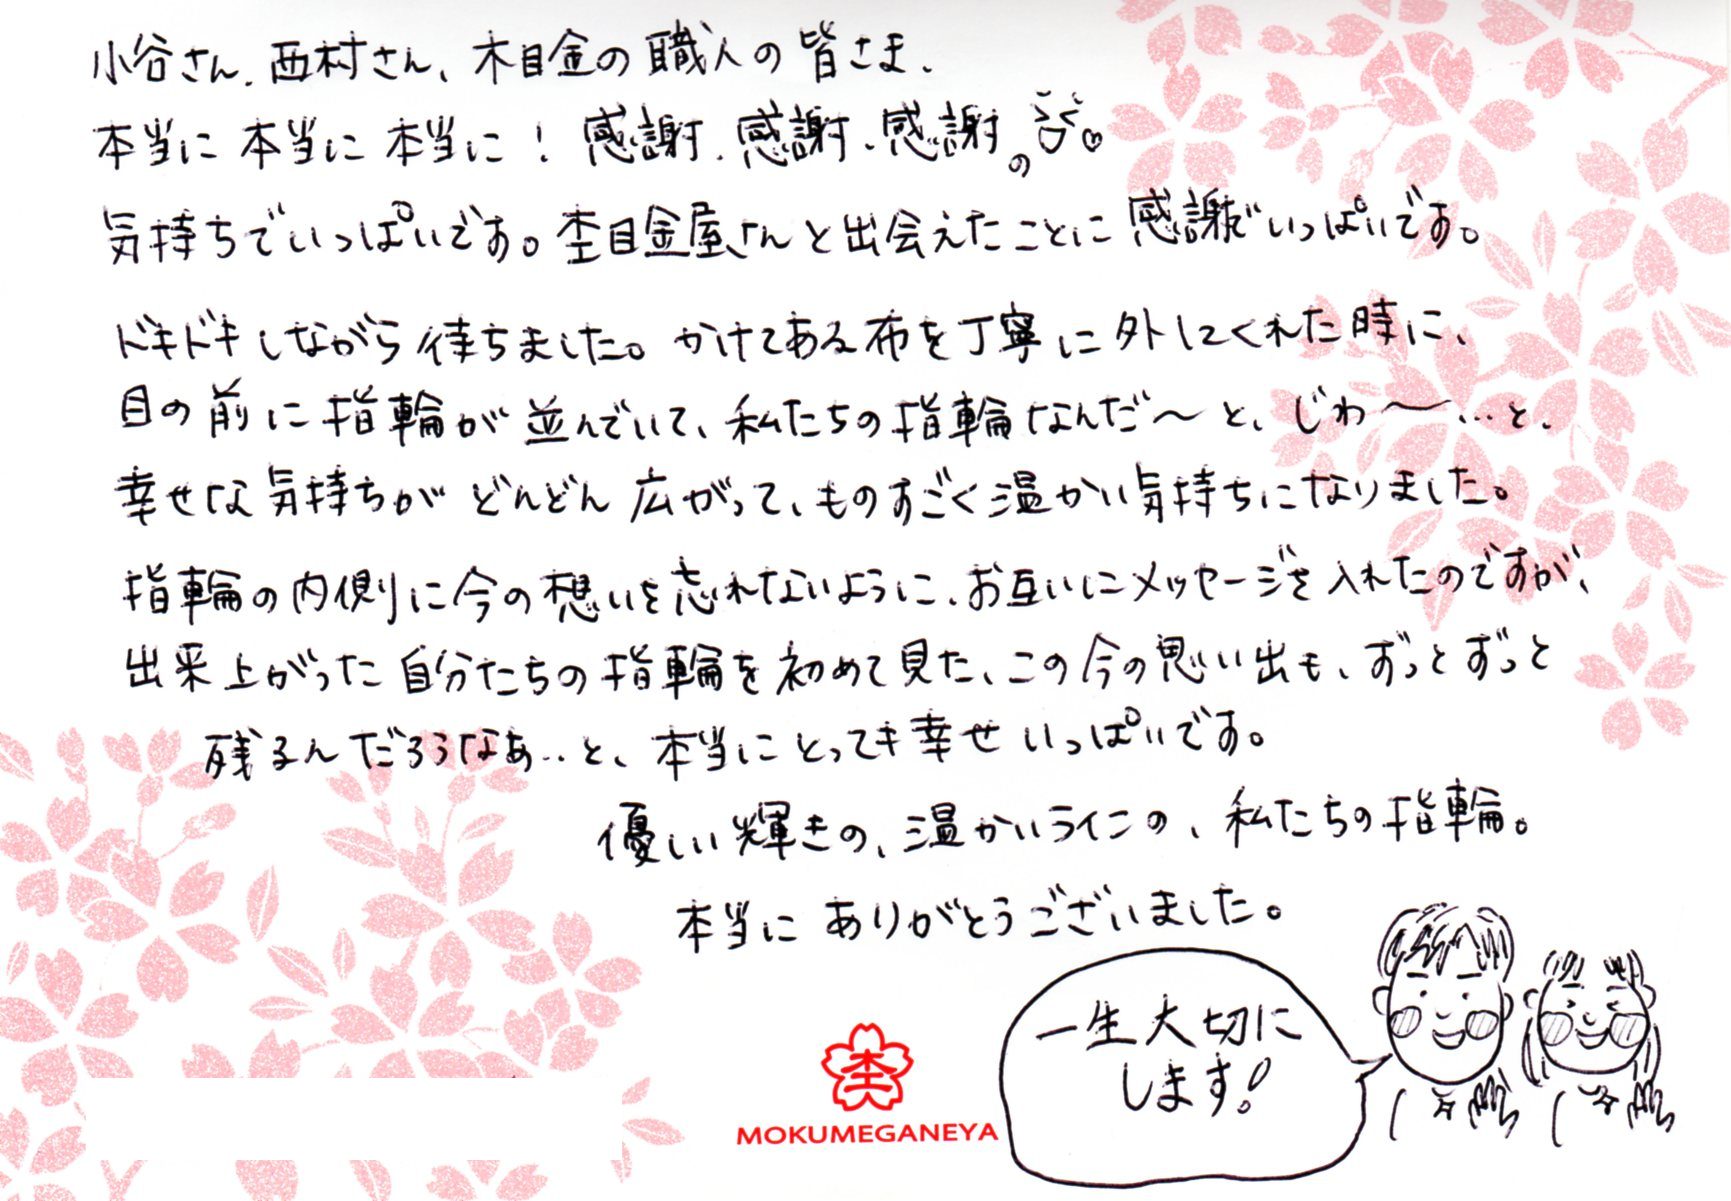 小谷さん、西村さん、木目金の職人の皆さま、
本当に本当に本当に！感謝、感謝、感謝の
気持ちでいっぱいです。杢目金屋さんと出会えたことに感謝でいっぱいです。
ドキドキしながら待ちました。かけてある布を丁寧に外してくれた時に、
目の前に指輪が並んでいて、私たちの指輪なんだ〜と、じわ〜…と、
幸せな気持ちがどんどん広がって、ものすごく温かい気持ちになりました。
指輪の内側に今の想いを忘れないように、お互いにメッセージを入れたのですが、
出来上がった自分たちの指輪を初めて見た、この今の思い出も、ずっとずっと
残るんだろうなぁ‥と、本当にとっても幸せいっぱいです。
優しい輝きの、温かいラインの、私たちの指輪。
本当にありがとうございました。
一生大切に
します！
杢
MOKUMEGANEYA